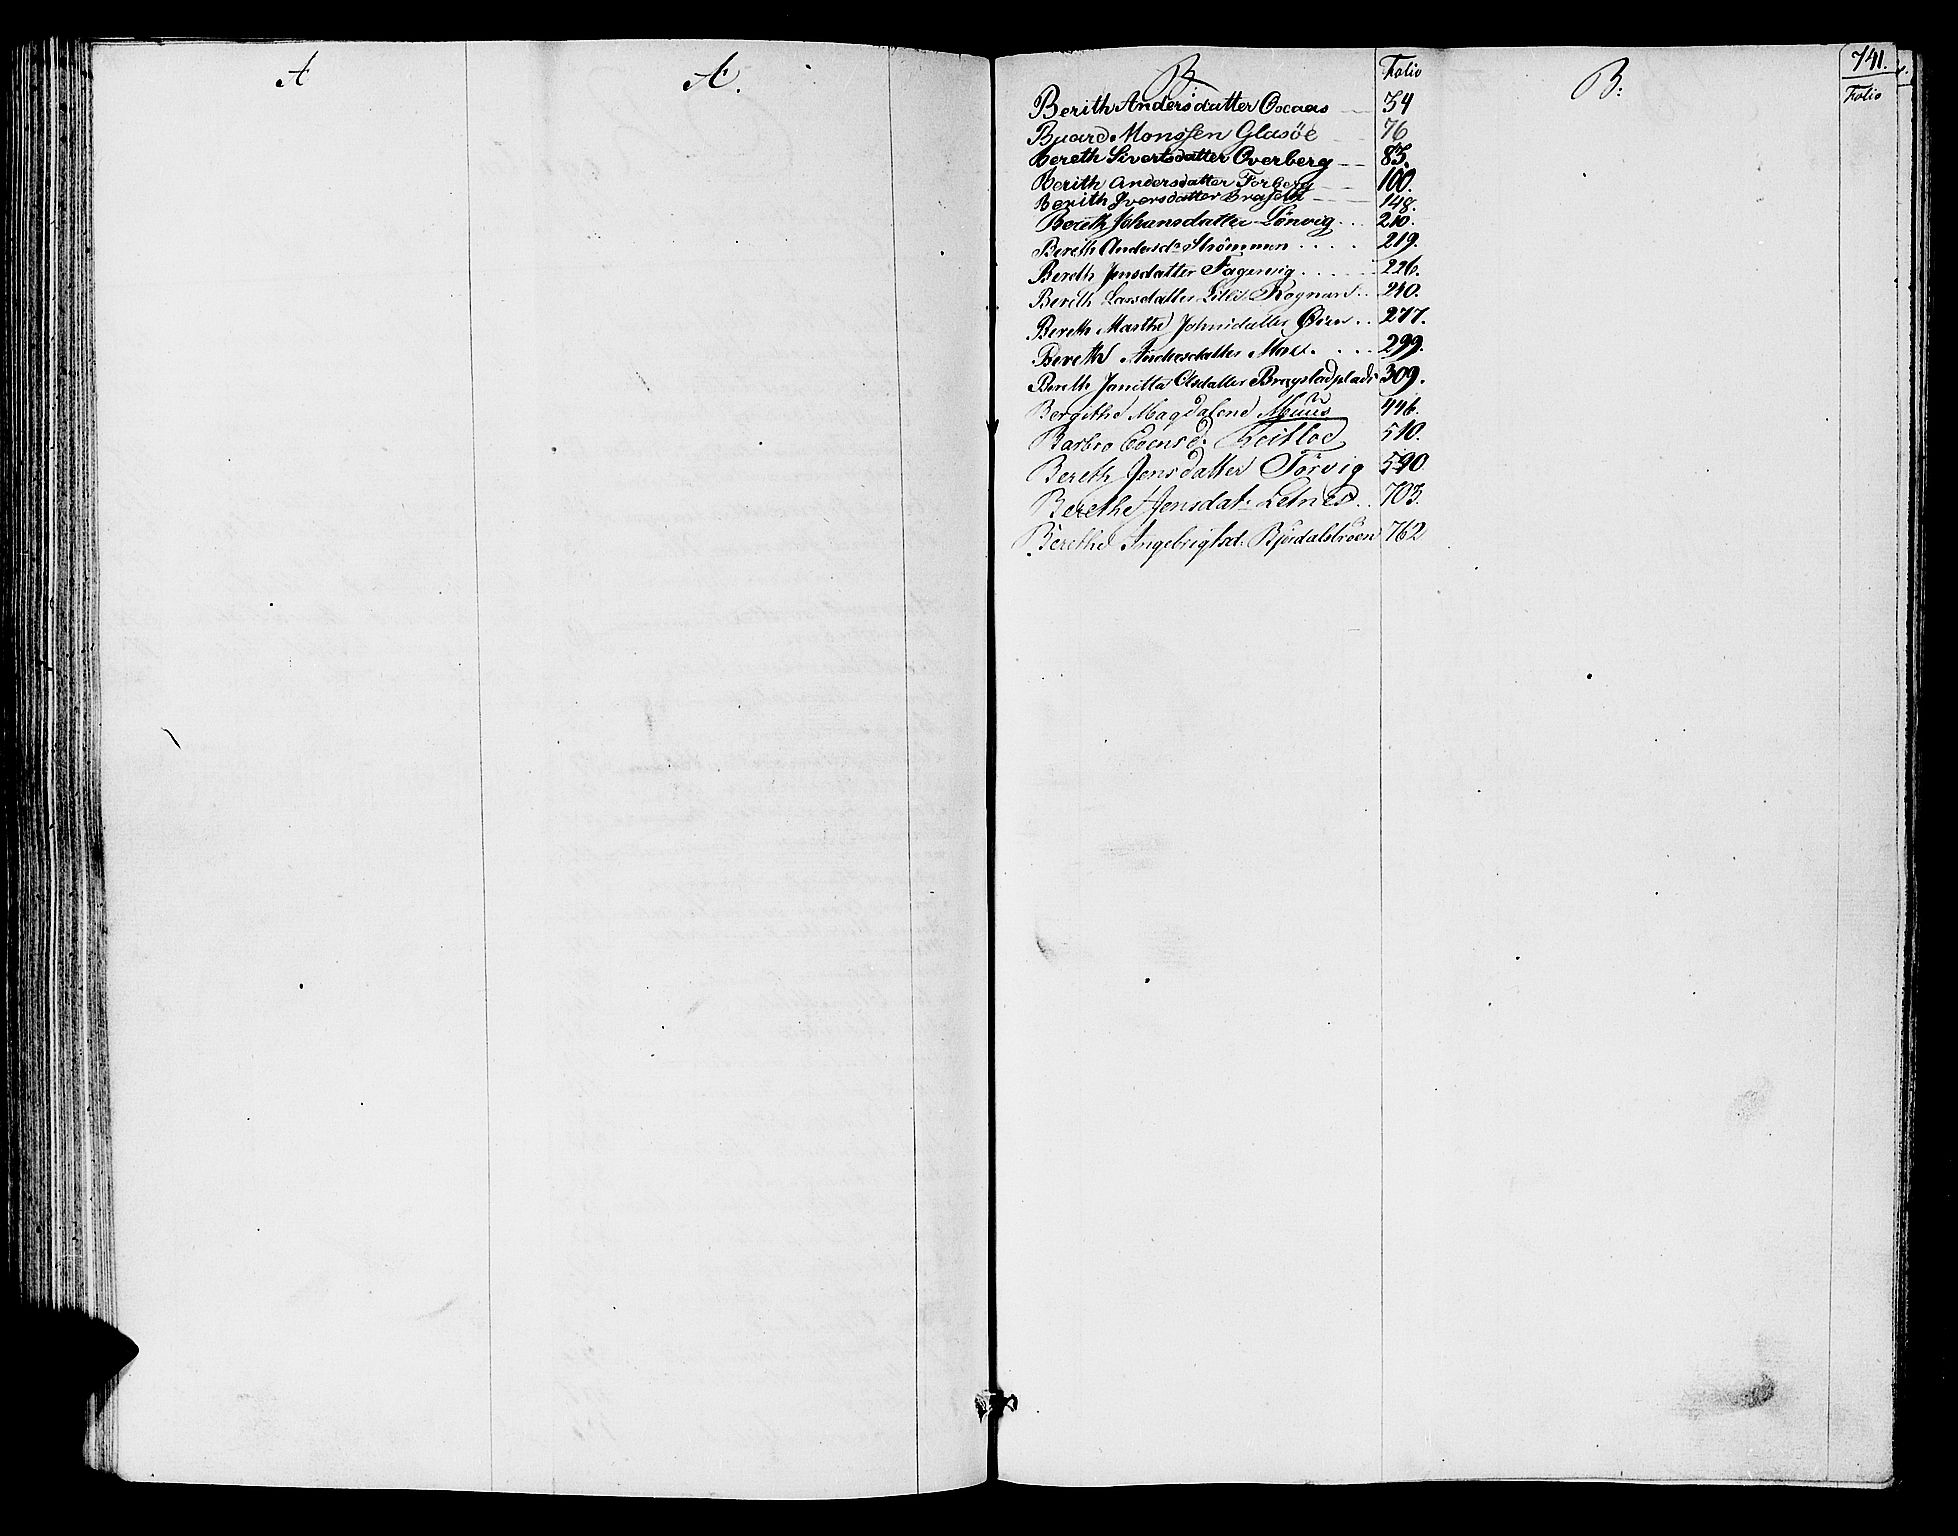 A
A.
B:
Folio
B:
741.
Folio
Berith Andersdatter Oxaas 34
Baard Monssen Glasöe 76
Bereth Sivertsdatter Overberg 83.
Berith Andersdatter Forberg 100.
Berith Iversdatter 148.
Bereth Johansdatter Lönvig 210.
Bereth Andersdr Strömmen 219.
Bereth Jensdatter Fagervig 226.
Berith Larsdatter Lille Rognan 240.
Bereth Marthe Johnsdatter 277.
Bereth Andersdatter Moe 299.
Bereth Janetta Olsdatter Brægstadplads 309.
Bergithe Magdalene Muus 446.
Barbro Evensd. 510.
Bereth Jensdatter Torvig 590
Berethe Jensdat: Letnes 703.
Berethe Ingebrigtsd: Bjürdalströen 762